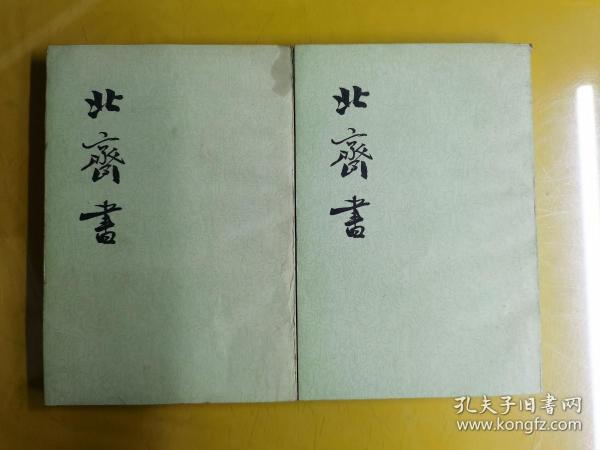 北齊書
北齊書
孔夫子旧書网
www.kongfz.com